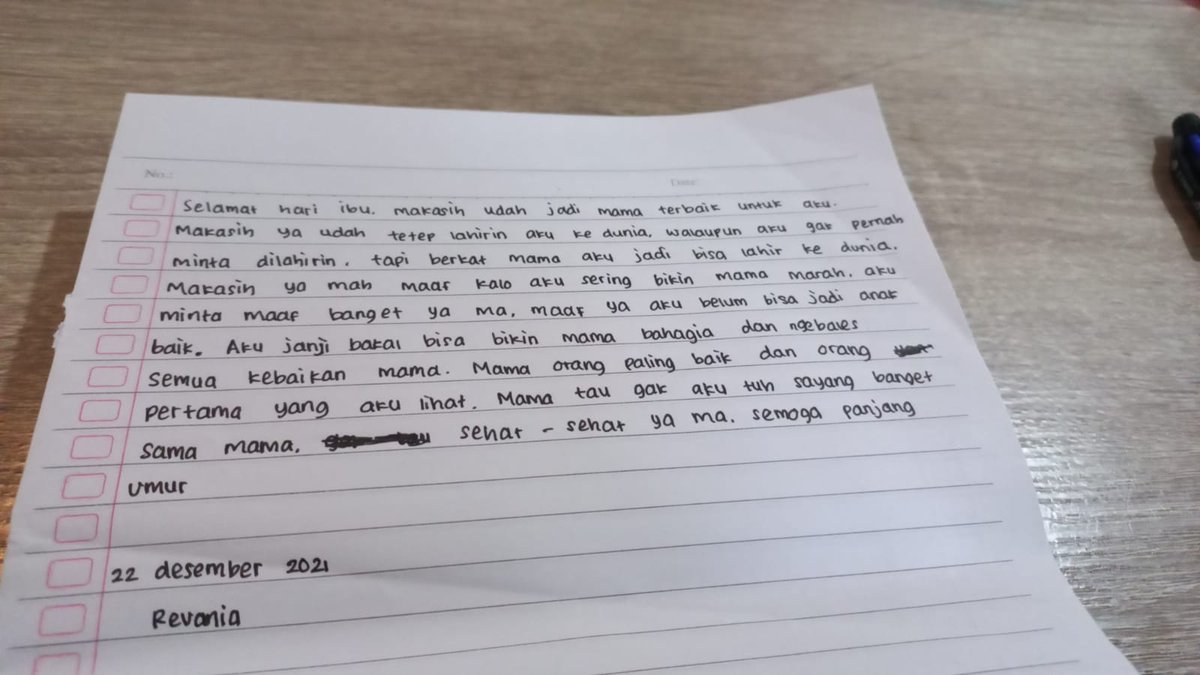 No.:
Date:
Selamat hari ibu. makasih udah jadi mama terbaik untuk aku.
Makasih ya udah tetep lahirin aku ke dunia, walaupun aku gak pernah
minta dilahirin. tapi berkat mama aku jadi bisa lahir ke dunia.
Makasih ya mah maaf kalo aku sering bikin mama marah. aku
minta maaf banget ya ma, maaf ya aku belum bisa jadi anak
baik. Aku janji bakal bisa bikin mama bahagia dan ngebales
semua kebaikan mama. Mama orang paling baik dan orang
pertama yang aku lihat. Mama tau gak aku tuh sayang banget
sama mama. sehat - sehat ya ma. semoga panjang
umur
22 desember 2021
Revania